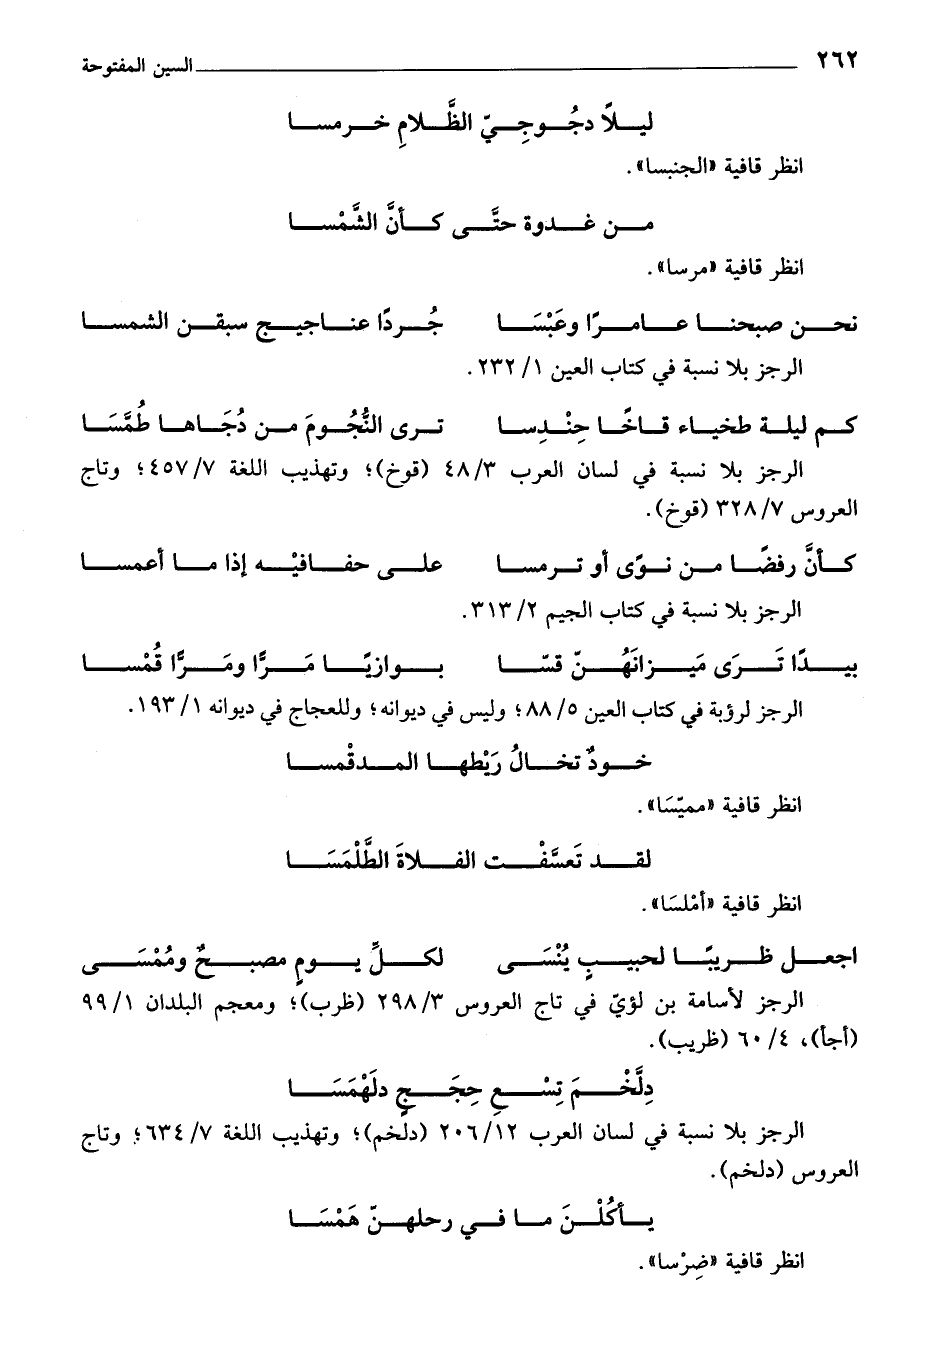 ٢٦٢ السين المفتوحة
ليلاً دجُوجِيّ الظَّلامِ خرمسا
انظر قافية «الجنبسا».
من غدوة حتَّى كأنَّ الشَّمْسا
انظر قافية «مرسا».
نحن صبحنا عامرًا وعَبْسَا جُردًا عناجيج سبقن الشمسا
الرجز بلا نسبة في كتاب العين ١/ ٢٣٢.
كم ليلة طخياء قاخًا حِنْدِسا ترى النُّجُومَ من دُجَاها طُمَّسَا
الرجز بلا نسبة في لسان العرب ٣/ ٤٨ (قوخ)؛ وتهذيب اللغة ٧/ ٤٥٧؛ وتاج
العروس ٧/ ٣٢٨ (قوخ).
كأنَّ رفضًا من نوًى أو ترمسا على حفافيْه إذا ما أعمسا
الرجز بلا نسبة في كتاب الجيم ٢/ ٣١٣.
بيدًا تَرَى مَيزانَهُنّ قسّا بوازيًا مَرًّا ومَرًّا قُمْسا
الرجز لرؤبة في كتاب العين ٥/ ٨٨؛ وليس في ديوانه؛ وللعجاج في ديوانه ١/ ١٩٣.
خودٌ تخالُ رَيْطها المدقْمسا
انظر قافية «مميّسَا».
لقد تَعسَّفْت الفلاةَ الطَّلْمَسَا
انظر قافية «أمْلسَا».
اجعل ظريبًا لحبيبٍ يُنْسَى لكلِّ يومٍ مصبحٌ ومُمْسَى
الرجز لأسامة بن لؤيّ في تاج العروس ٣/ ٢٩٨ (ظرب)؛ ومعجم البلدان ١/ ٩٩
(أجأ)، ٤/ ٦٠ (ظريب).
دِلَّخْمَ تِسْعِ حِجَجٍ دلَهْمَسَا
الرجز بلا نسبة في لسان العرب ١٢/ ٢٠٦ (دلخم)؛ وتهذيب اللغة ٧/ ٦٣٤؛ وتاج
العروس (دلخم).
يأكُلْنَ ما في رحلهنّ هَمْسَا
انظر قافية «ضِرْسا».